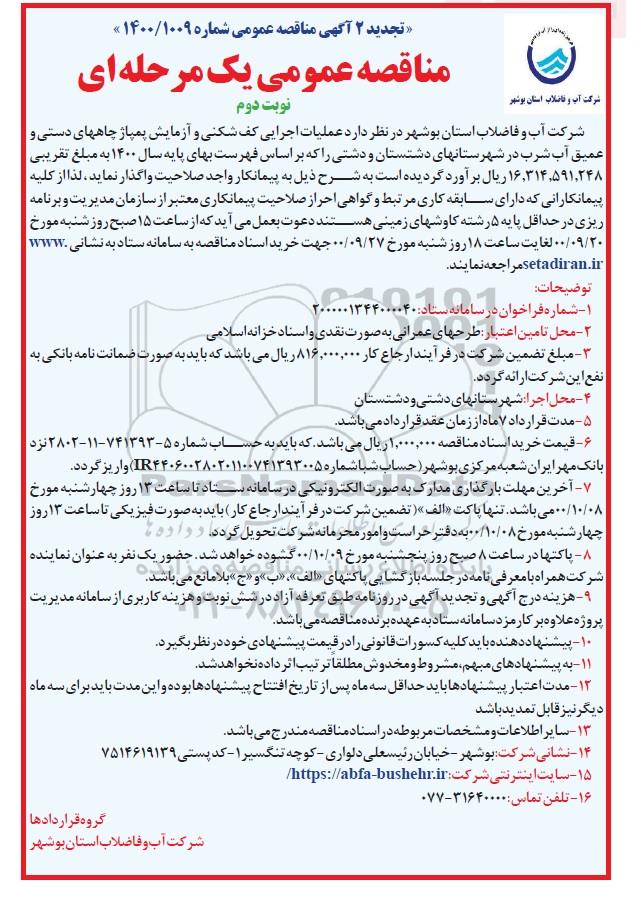 «تجدید ۲ آگهی مناقصه عمومی شماره ۱۴۰۰/۱۰۰۹ »
مناقصه عمومی یک مرحله ای
نوبت دوم
شرکت آب و فاضلاب استان بوشهر
شرکت آب و فاضلاب استان بوشهر در نظر دارد عملیات اجرایی کف شکنی و آزمایش پمپاژ چاههای دستی و
عمیق آب شرب در شهرستانهای دشتستان و دشتی را که بر اساس فهرست بهای پایه سال ۱۴۰۰ به مبلغ تقریبی
۱۶,۳۱۴,۵۹۱,۲۴۸ ریال برآورد گردیده است به شرح ذیل به پیمانکار واجد صلاحیت واگذار نماید، لذا از کلیه
پیمانکارانی که دارای سابقه کاری مرتبط و گواهی احراز صلاحیت پیمانکاری معتبر از سازمان مدیریت و برنامه
ریزی در حداقل پایه ۵ رشته کاوشهای زمینی هستند دعوت بعمل می آید که از ساعت ۱۵ صبح روز شنبه مورخ
۰۰/۰۹/۲۰ لغایت ساعت ۱۸ روز شنبه مورخ ۰۰/۰۹/۲۷ جهت خرید اسناد مناقصه به سامانه ستاد به نشانی www.
setadiran.ir مراجعه نمایند.
توضیحات:
۱- شماره فراخوان در سامانه ستاد: ۲۰۰۰۰۰۱۳۴۴۰۰۰۰۴۰
۲- محل تامین اعتبار: طرحهای عمرانی به صورت نقدی و اسناد خزانه اسلامی
۳- مبلغ تضمین شرکت در فرآیند ارجاع کار ۸۱۶,۰۰۰,۰۰۰ ریال می باشد که باید به صورت ضمانت نامه بانکی به
نفع این شرکت ارائه گردد.
۴- محل اجرا: شهرستانهای دشتی و دشتستان
۵- مدت قرارداد ۷ ماه از زمان عقد قرارداد می باشد.
۶- قیمت خرید اسناد مناقصه ۱,۰۰۰,۰۰۰ ریال می باشد. که باید به حساب شماره ۵-۷۴۱۳۹۳-۱۱-۲۸۰۲ نزد
بانک مهر ایران شعبه مرکزی بوشهر (حساب شبا شماره IR۴۴۰۶۰۰۲۸۰۲۰۱۱۰۰۷۴۱۳۹۳۰۰۵) واریز گردد.
۷- آخرین مهلت بارگذاری مدارک به صورت الکترونیکی در سامانه ستاد تا ساعت ۱۳ روز چهارشنبه مورخ
۰۰/۱۰/۰۸ می باشد. تنها پاکت «الف» (تضمین شرکت در فرآیند ارجاع کار) باید به صورت فیزیکی تا ساعت ۱۳ روز
چهارشنبه مورخ ۰۰/۱۰/۰۸ به دفتر حراست و امور محرمانه شرکت تحویل گردد.
۸- پاکتها در ساعت ۸ صبح روز پنجشنبه مورخ ۰۰/۱۰/۰۹ گشوده خواهد شد. حضور یک نفر به عنوان نماینده
شرکت همراه با معرفی نامه در جلسه بازگشایی پاکتهای «الف»، «ب» و «ج» بلامانع می باشد.
۹- هزینه درج آگهی و تجدید آگهی در روزنامه طبق تعرفه آزاد در شش نوبت و هزینه کاربری از سامانه مدیریت
پروژه علاوه بر کارمزد سامانه ستاد به عهده برنده مناقصه می باشد.
۱۰- پیشنهاد دهنده باید کلیه کسورات قانونی را در قیمت پیشنهادی خود در نظر بگیرد.
۱۱- به پیشنهادهای مبهم، مشروط و مخدوش مطلقاً ترتیب اثر داده نخواهد شد.
۱۲- مدت اعتبار پیشنهادها باید حداقل سه ماه پس از تاریخ افتتاح پیشنهادها بوده و این مدت باید برای سه ماه
دیگر نیز قابل تمدید باشد
۱۳- سایر اطلاعات و مشخصات مربوطه در اسناد مناقصه مندرج می باشد.
۱۴- نشانی شرکت: بوشهر - خیابان رئیسعلی دلواری - کوچه تنگسیر ۱- کد پستی ۷۵۱۴۶۱۹۱۳۹
۱۵- سایت اینترنتی شرکت: https://abfa-bushehr.ir/
۱۶- تلفن تماس: ۰۷۷-۳۱۶۴۰۰۰۰
گروه قراردادها
شرکت آب و فاضلاب استان بوشهر